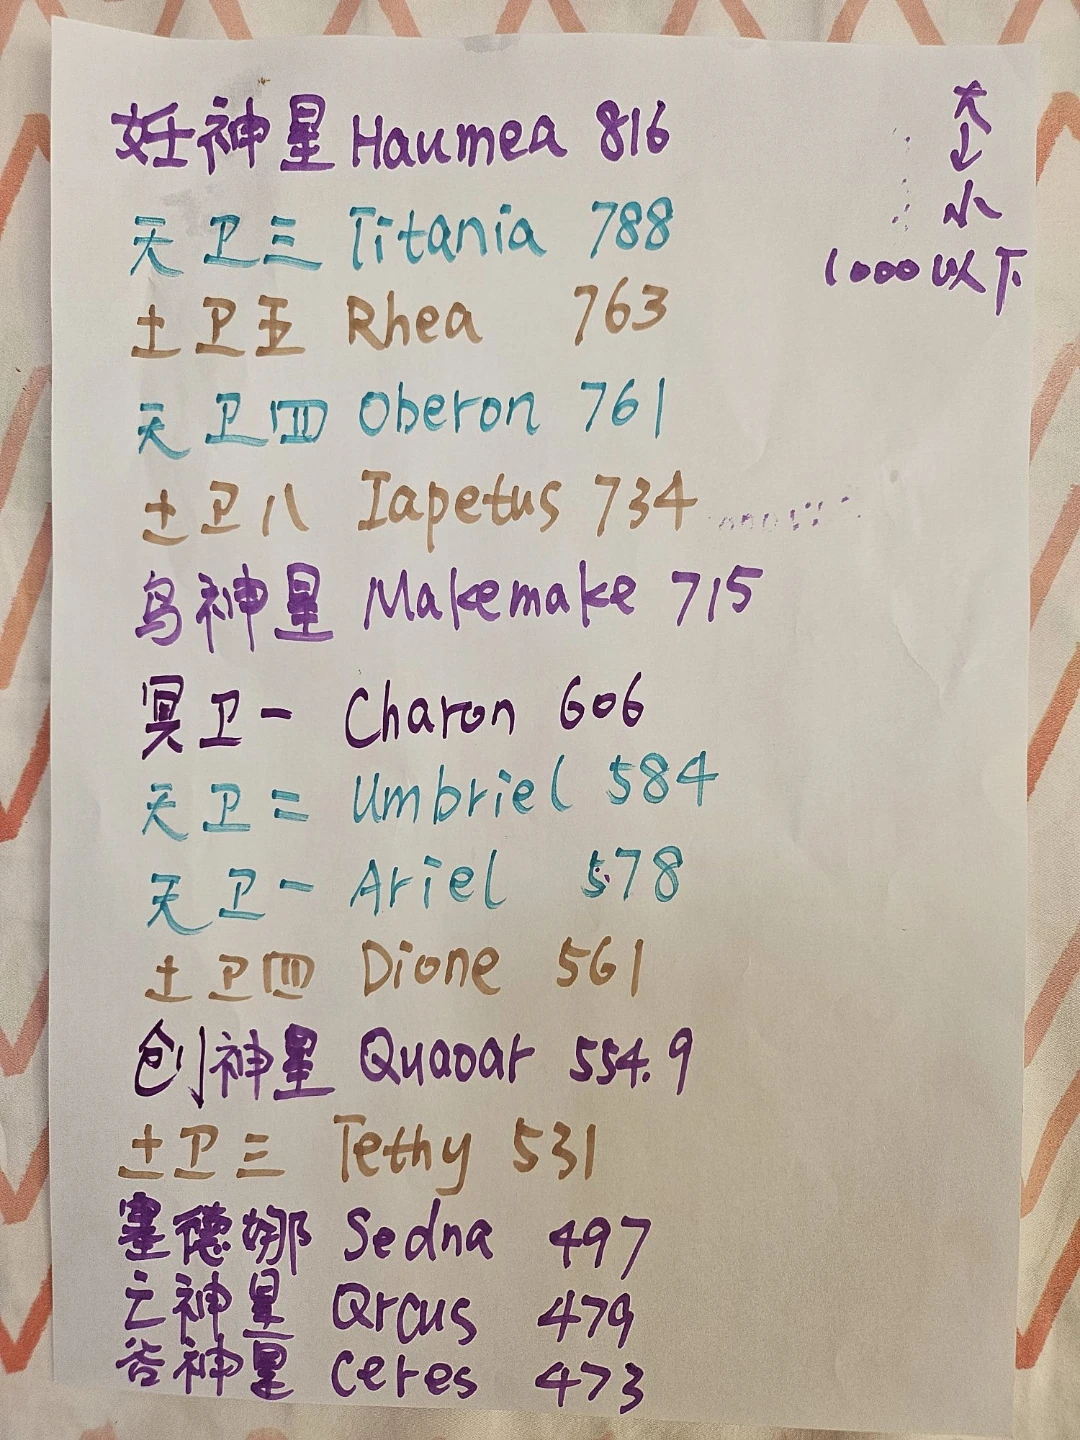 妊神星 Haumea 816
大
↓
小
1000以下
天卫三 Titania 788
土卫五 Rhea 763
天卫四 Oberon 761
土卫八 Iapetus 734
鸟神星 Makemake 715
冥卫一 Charon 606
天卫二 Umbriel 584
天卫一 Ariel 578
土卫四 Dione 561
创神星 Quaoar 554.9
土卫三 Tethy 531
塞德娜 Sedna 497
亡神星 Qrcus 479
谷神星 Ceres 473